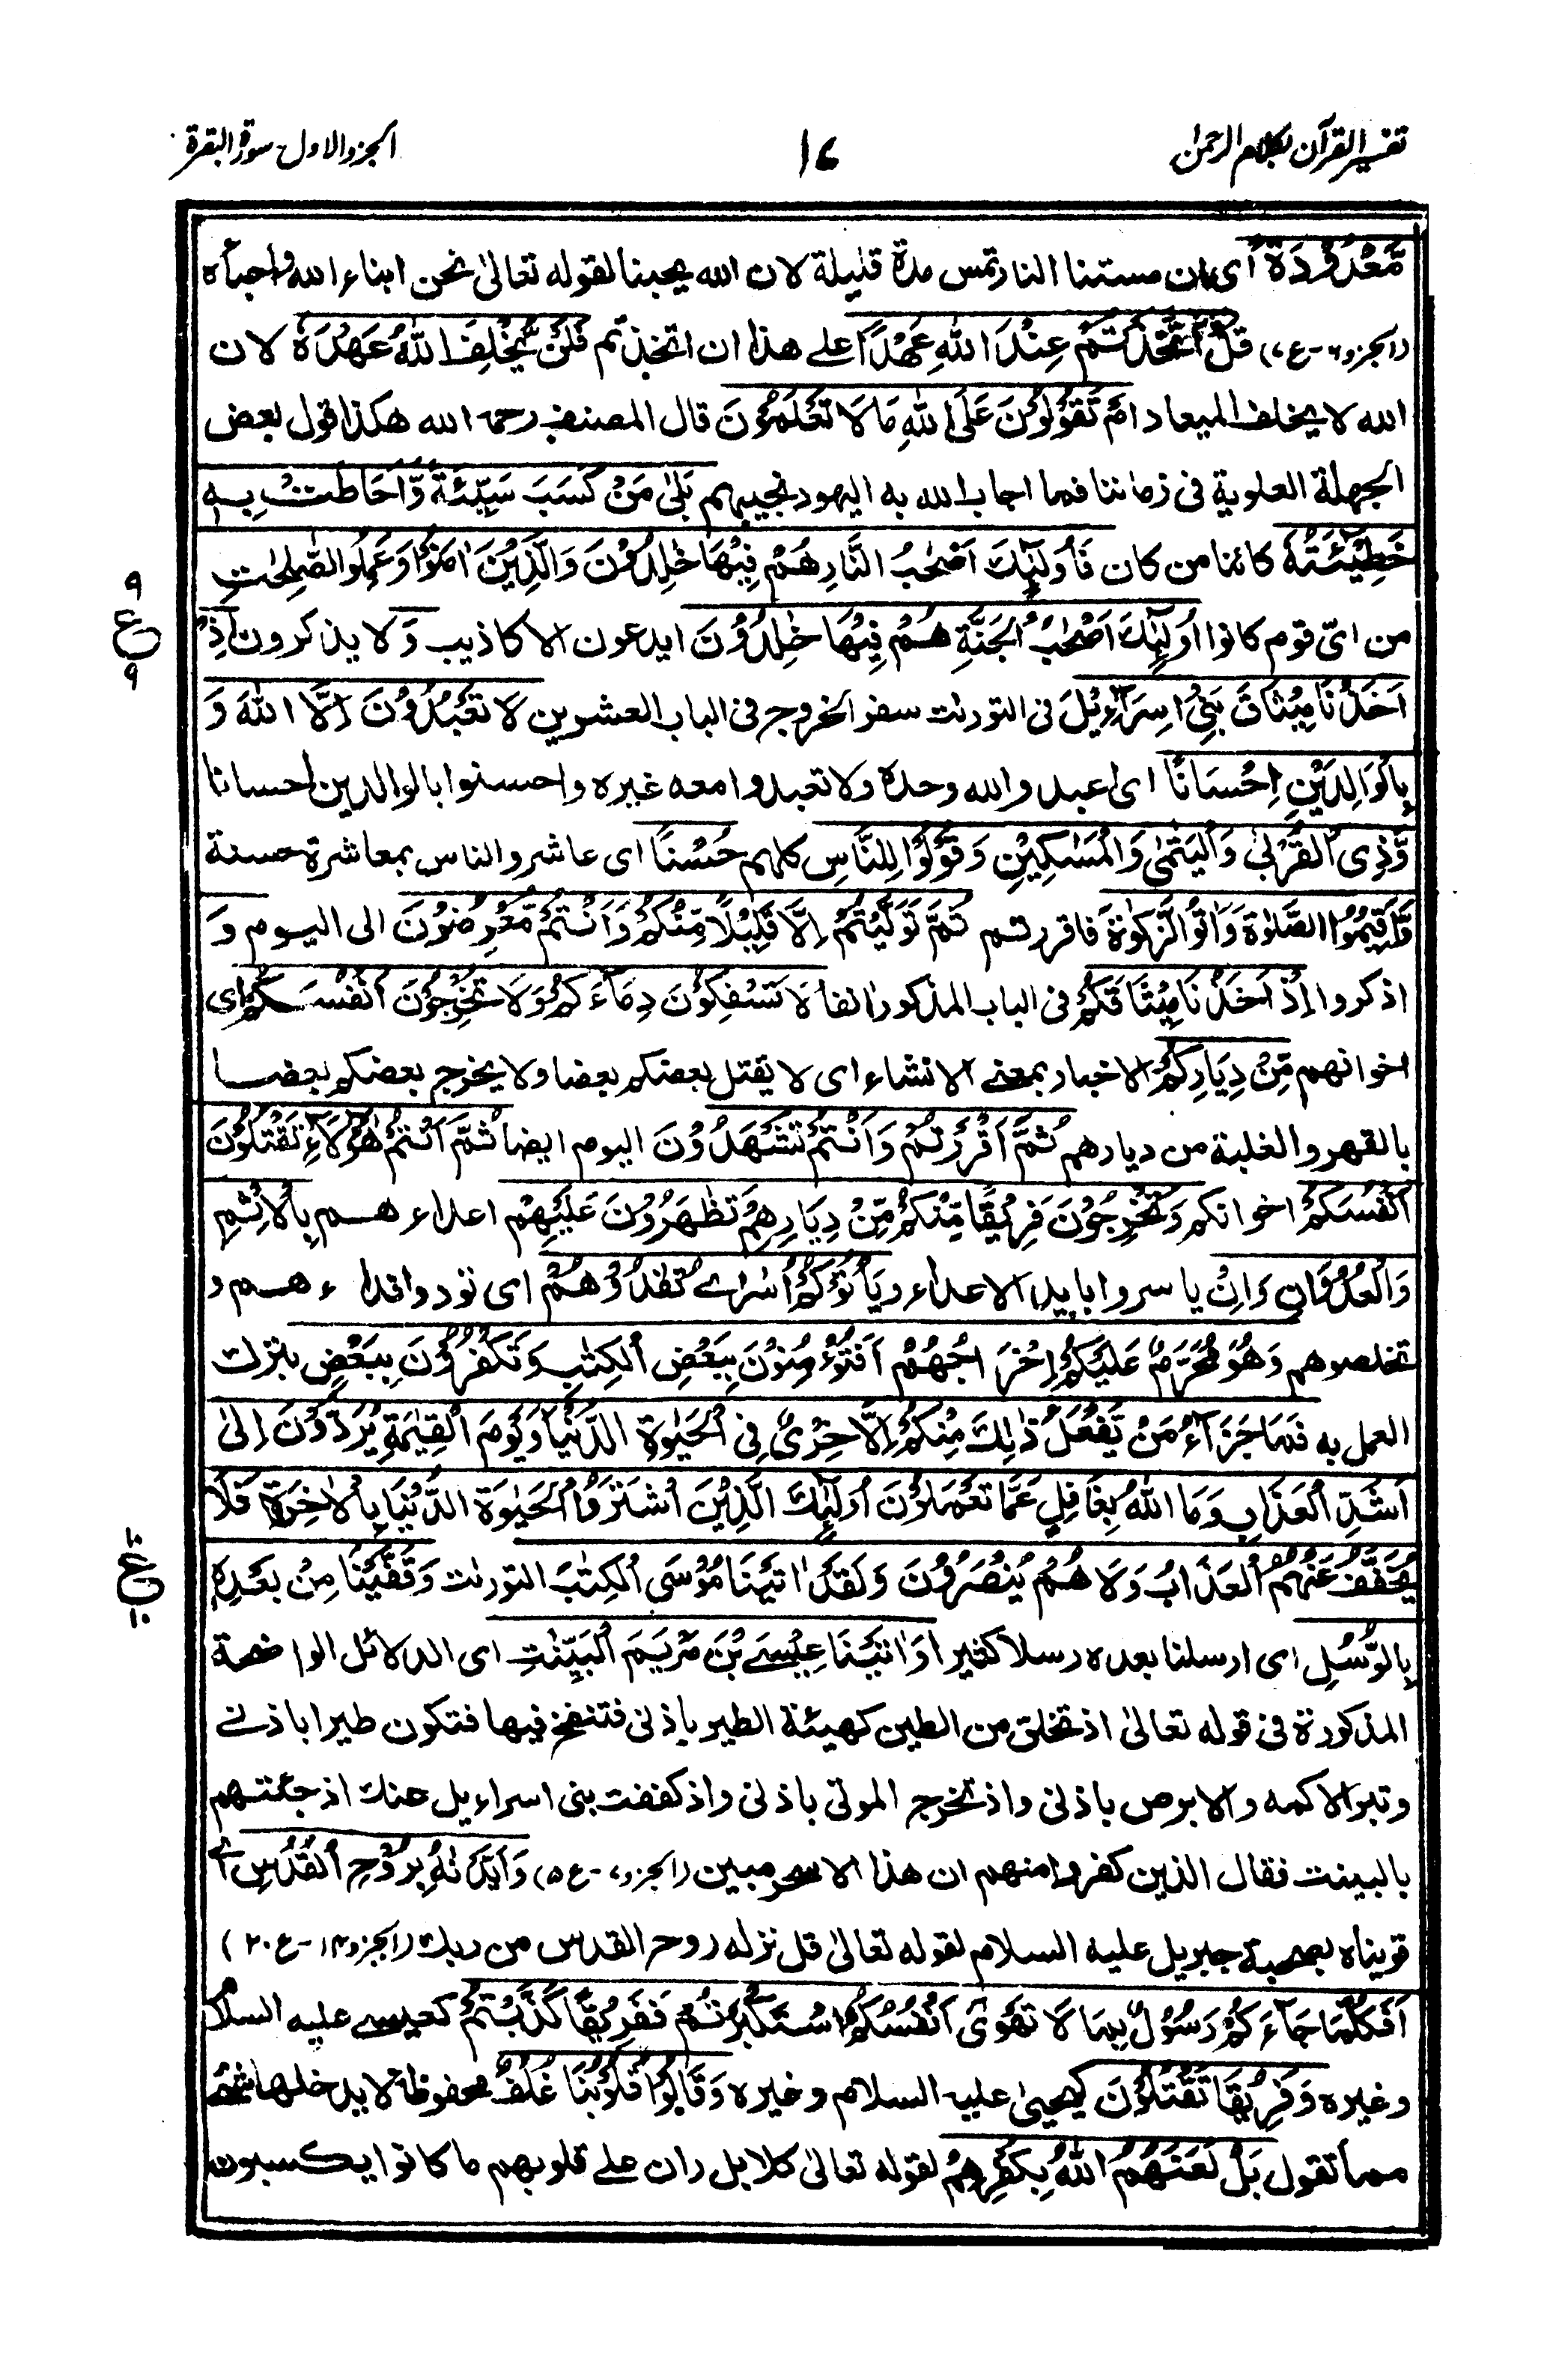 تفسير القرآن بكلام الرحمن
١٧
الجزء الاول سورة البقرة
مَّعْدُوْدَةً اى ان مستنا النار تمس مدة قليلة لان الله يحبنا لقوله تعالىٰ نحن ابناء الله واحباءه
(الجزو٦-ع٧) قُلْ اَتَّخَذْتُمْ عِنْدَ اللّٰهِ عَهْدًا علے هذا ان اتخذتم فَلَنْ يُّخْلِفَ اللّٰهُ عَهْدَهٗ لان
الله لا يخلف الميعاد اَمْ تَقُوْلُوْنَ عَلَى اللّٰهِ مَا لَا تَعْلَمُوْنَ قال المصنف رحمه الله هكذا قول بعض
الجهلة العلوية فى زماننا فما اجاب الله به اليهود نجيبهم بَلٰى مَنْ كَسَبَ سَيِّئَةً وَّاَحَاطَتْ بِهٖ
خَطِيْٓئَتُهٗ كائنا من كان فَاُولٰٓئِكَ اَصْحٰبُ النَّارِ هُمْ فِيْهَا خٰلِدُوْنَ وَالَّذِيْنَ اٰمَنُوْا وَعَمِلُوا الصّٰلِحٰتِ
٩
ع
٩
من اىّ قوم كانوا اُولٰٓئِكَ اَصْحٰبُ الْجَنَّةِ هُمْ فِيْهَا خٰلِدُوْنَ ايدعون الاكاذيب وَ لا يذكرون اِذْ
اَخَذْنَا مِيْثَاقَ بَنِيْ اِسْرَآءِيْلَ فى التورىٰت سفر الخروج فى الباب العشرين لَا تَعْبُدُوْنَ اِلَّا اللّٰهَ وَ
بِالْوَالِدَيْنِ اِحْسَانًا اى اعبدوا الله وحده ولا تعبدوا معه غيره واحسنوا بالوالدين احسانا
وَّذِى الْقُرْبٰى وَالْيَتٰمٰى وَالْمَسٰكِيْنِ وَقُوْلُوْا لِلنَّاسِ كلهم حُسْنًا اى عاشروا الناس بمعاشرة حسنة
وَّاَقِيْمُوا الصَّلٰوةَ وَاٰتُوا الزَّكٰوةَ فاقررتم ثُمَّ تَوَلَّيْتُمْ اِلَّا قَلِيْلًا مِّنْكُمْ وَاَنْتُمْ مُّعْرِضُوْنَ الى اليوم وَ
اذكروا اِذْ اَخَذْنَا مِيْثَاقَكُمْ فى الباب المذكور اٰنفا لَا تَسْفِكُوْنَ دِمَآءَكُمْ وَلَا تُخْرِجُوْنَ اَنْفُسَكُمْ اى
اخوانهم مِّنْ دِيَارِكُمْ الاخبار بمعنے الانشاء اى لا يقتل بعضكم بعضا ولا يخرج بعضكم بعضا
بالقهر والغلبة من ديارهم ثُمَّ اَقْرَرْتُمْ وَاَنْتُمْ تَشْهَدُوْنَ اليوم ايضا ثُمَّ اَنْتُمْ هٰٓؤُلَآءِ تَقْتُلُوْنَ
اَنْفُسَكُمْ اخوانكم وَتُخْرِجُوْنَ فَرِيْقًا مِّنْكُمْ مِّنْ دِيَارِهِمْ تَظٰهَرُوْنَ عَلَيْهِمْ اعداءهم بِالْاِثْمِ
وَالْعُدْوَانِ وَاِنْ ياسروا بايدى الاعداء و يَأْتُوْكُمْ اُسٰرٰى تُفٰدُوْهُمْ اى تودوا فداءهم و
تخلصوهم وَهُوَ مُحَرَّمٌ عَلَيْكُمْ اِخْرَاجُهُمْ اَفَتُؤْمِنُوْنَ بِبَعْضِ الْكِتٰبِ وَتَكْفُرُوْنَ بِبَعْضٍ بترك
العمل به فَمَا جَزَآءُ مَنْ يَّفْعَلُ ذٰلِكَ مِنْكُمْ اِلَّا خِزْىٌ فِى الْحَيٰوةِ الدُّنْيَا وَيَوْمَ الْقِيٰمَةِ يُرَدُّوْنَ اِلٰى
اَشَدِّ الْعَذَابِ وَمَا اللّٰهُ بِغَافِلٍ عَمَّا تَعْمَلُوْنَ اُولٰٓئِكَ الَّذِيْنَ اشْتَرَوُا الْحَيٰوةَ الدُّنْيَا بِالْاٰخِرَةِ فَلَا
يُخَفَّفُ عَنْهُمُ الْعَذَابُ وَلَا هُمْ يُنْصَرُوْنَ وَلَقَدْ اٰتَيْنَا مُوْسَى الْكِتٰبَ التورىٰت وَقَفَّيْنَا مِنْ بَعْدِهٖ
١٠
ع
١٠
بِالرُّسُلِ اى ارسلنا بعده رسلا كثيرا وَاٰتَيْنَا عِيْسَے بْنَ مَرْيَمَ الْبَيِّنٰتِ اى الدلائل الواضحة
المذكورة فى قوله تعالىٰ اذ تخلق من الطين كهيئة الطير باذنى فتنفخ فيها فتكون طيرا باذنے
وتبرئ الاكمه والابرص باذنى واذ تخرج الموتى باذنى واذ كففت بنى اسراءيل عنك اذ جئتهم
بالبينت فقال الذين كفروا منهم ان هذا الا سحر مبين (الجزو٧-ع٥) وَاَيَّدْنٰهُ بِرُوْحِ الْقُدُسِ اے
قويناه بصحبة جبريل عليه السلام لقوله تعالىٰ قل نزله روح القدس من ربك (الجزو١٤-ع٢٠)
اَفَكُلَّمَا جَآءَكُمْ رَسُوْلٌ بِمَا لَا تَهْوٰٓى اَنْفُسُكُمُ اسْتَكْبَرْتُمْ فَفَرِيْقًا كَذَّبْتُمْ كعيسے عليه السلام
وغيره وَفَرِيْقًا تَقْتُلُوْنَ كيحيىٰ عليه السلام وغيره وَقَالُوْا قُلُوْبُنَا غُلْفٌ محفوظة لا يدخلها شئ
مما تقول بَلْ لَّعَنَهُمُ اللّٰهُ بِكُفْرِهِمْ لقوله تعالىٰ كلا بل ران علے قلوبهم ما كانوا يكسبون